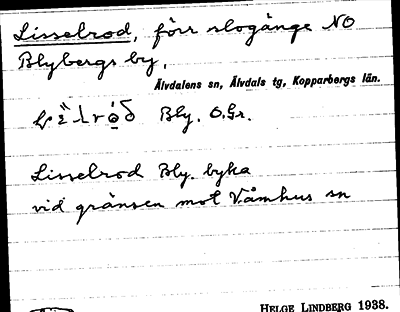 Lisselrod, förr slogänge NO
Blybergs by,
Älvdalens sn, Älvdals tg, Kopparbergs län.
Bly. O.Gr.
Lisselrod Bly. byka
vid gränsen mot Våmhus sn
HELGE LINDBERG 1938.